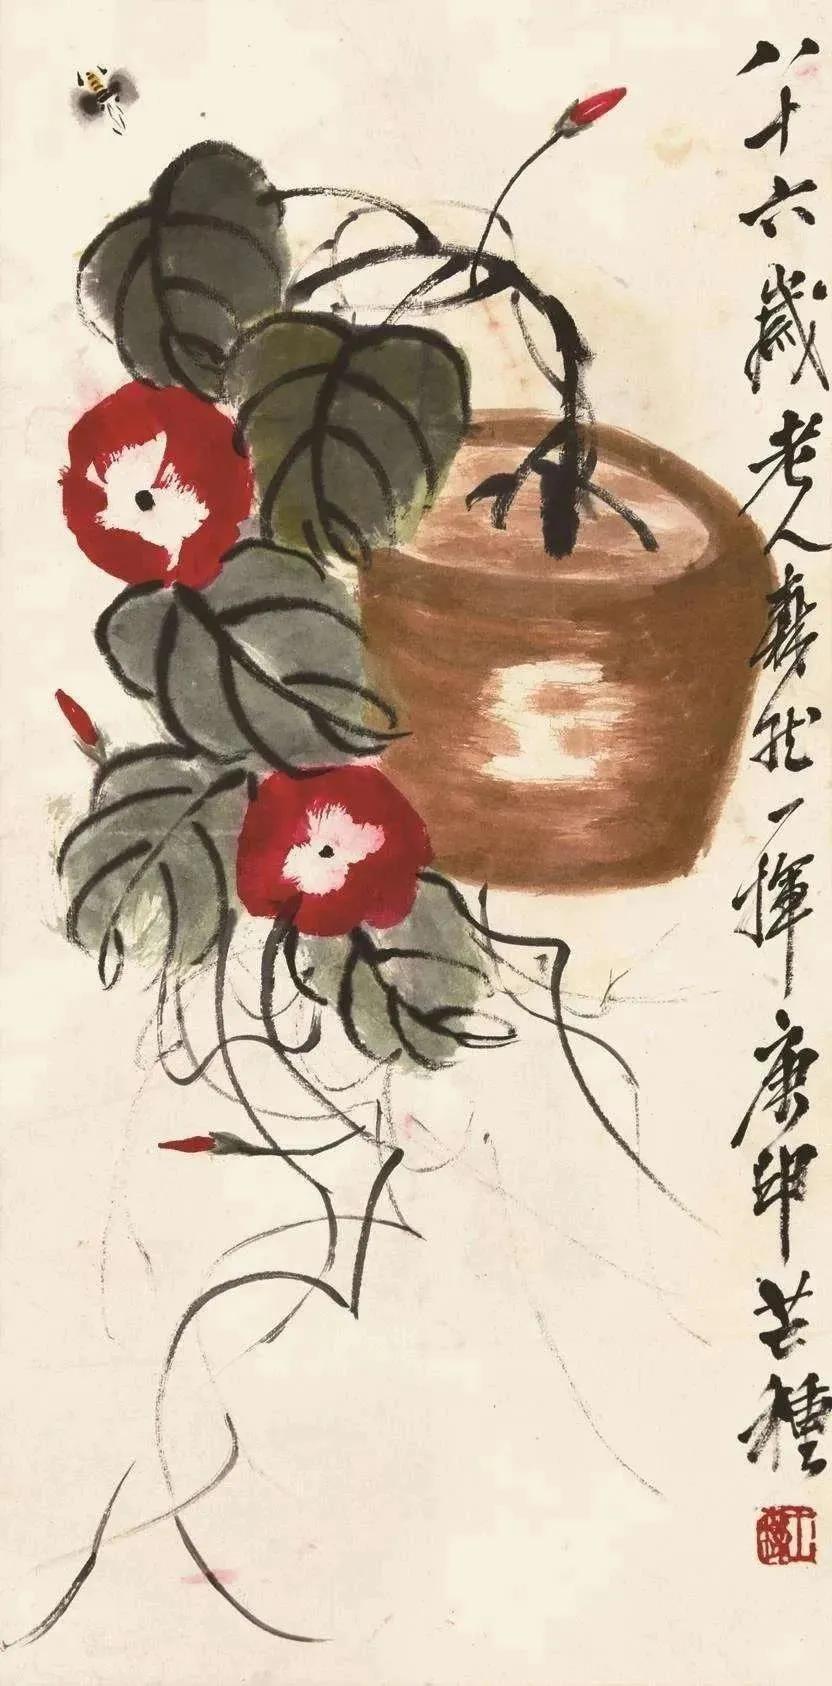 八十六歲老人一揮庚申芒種